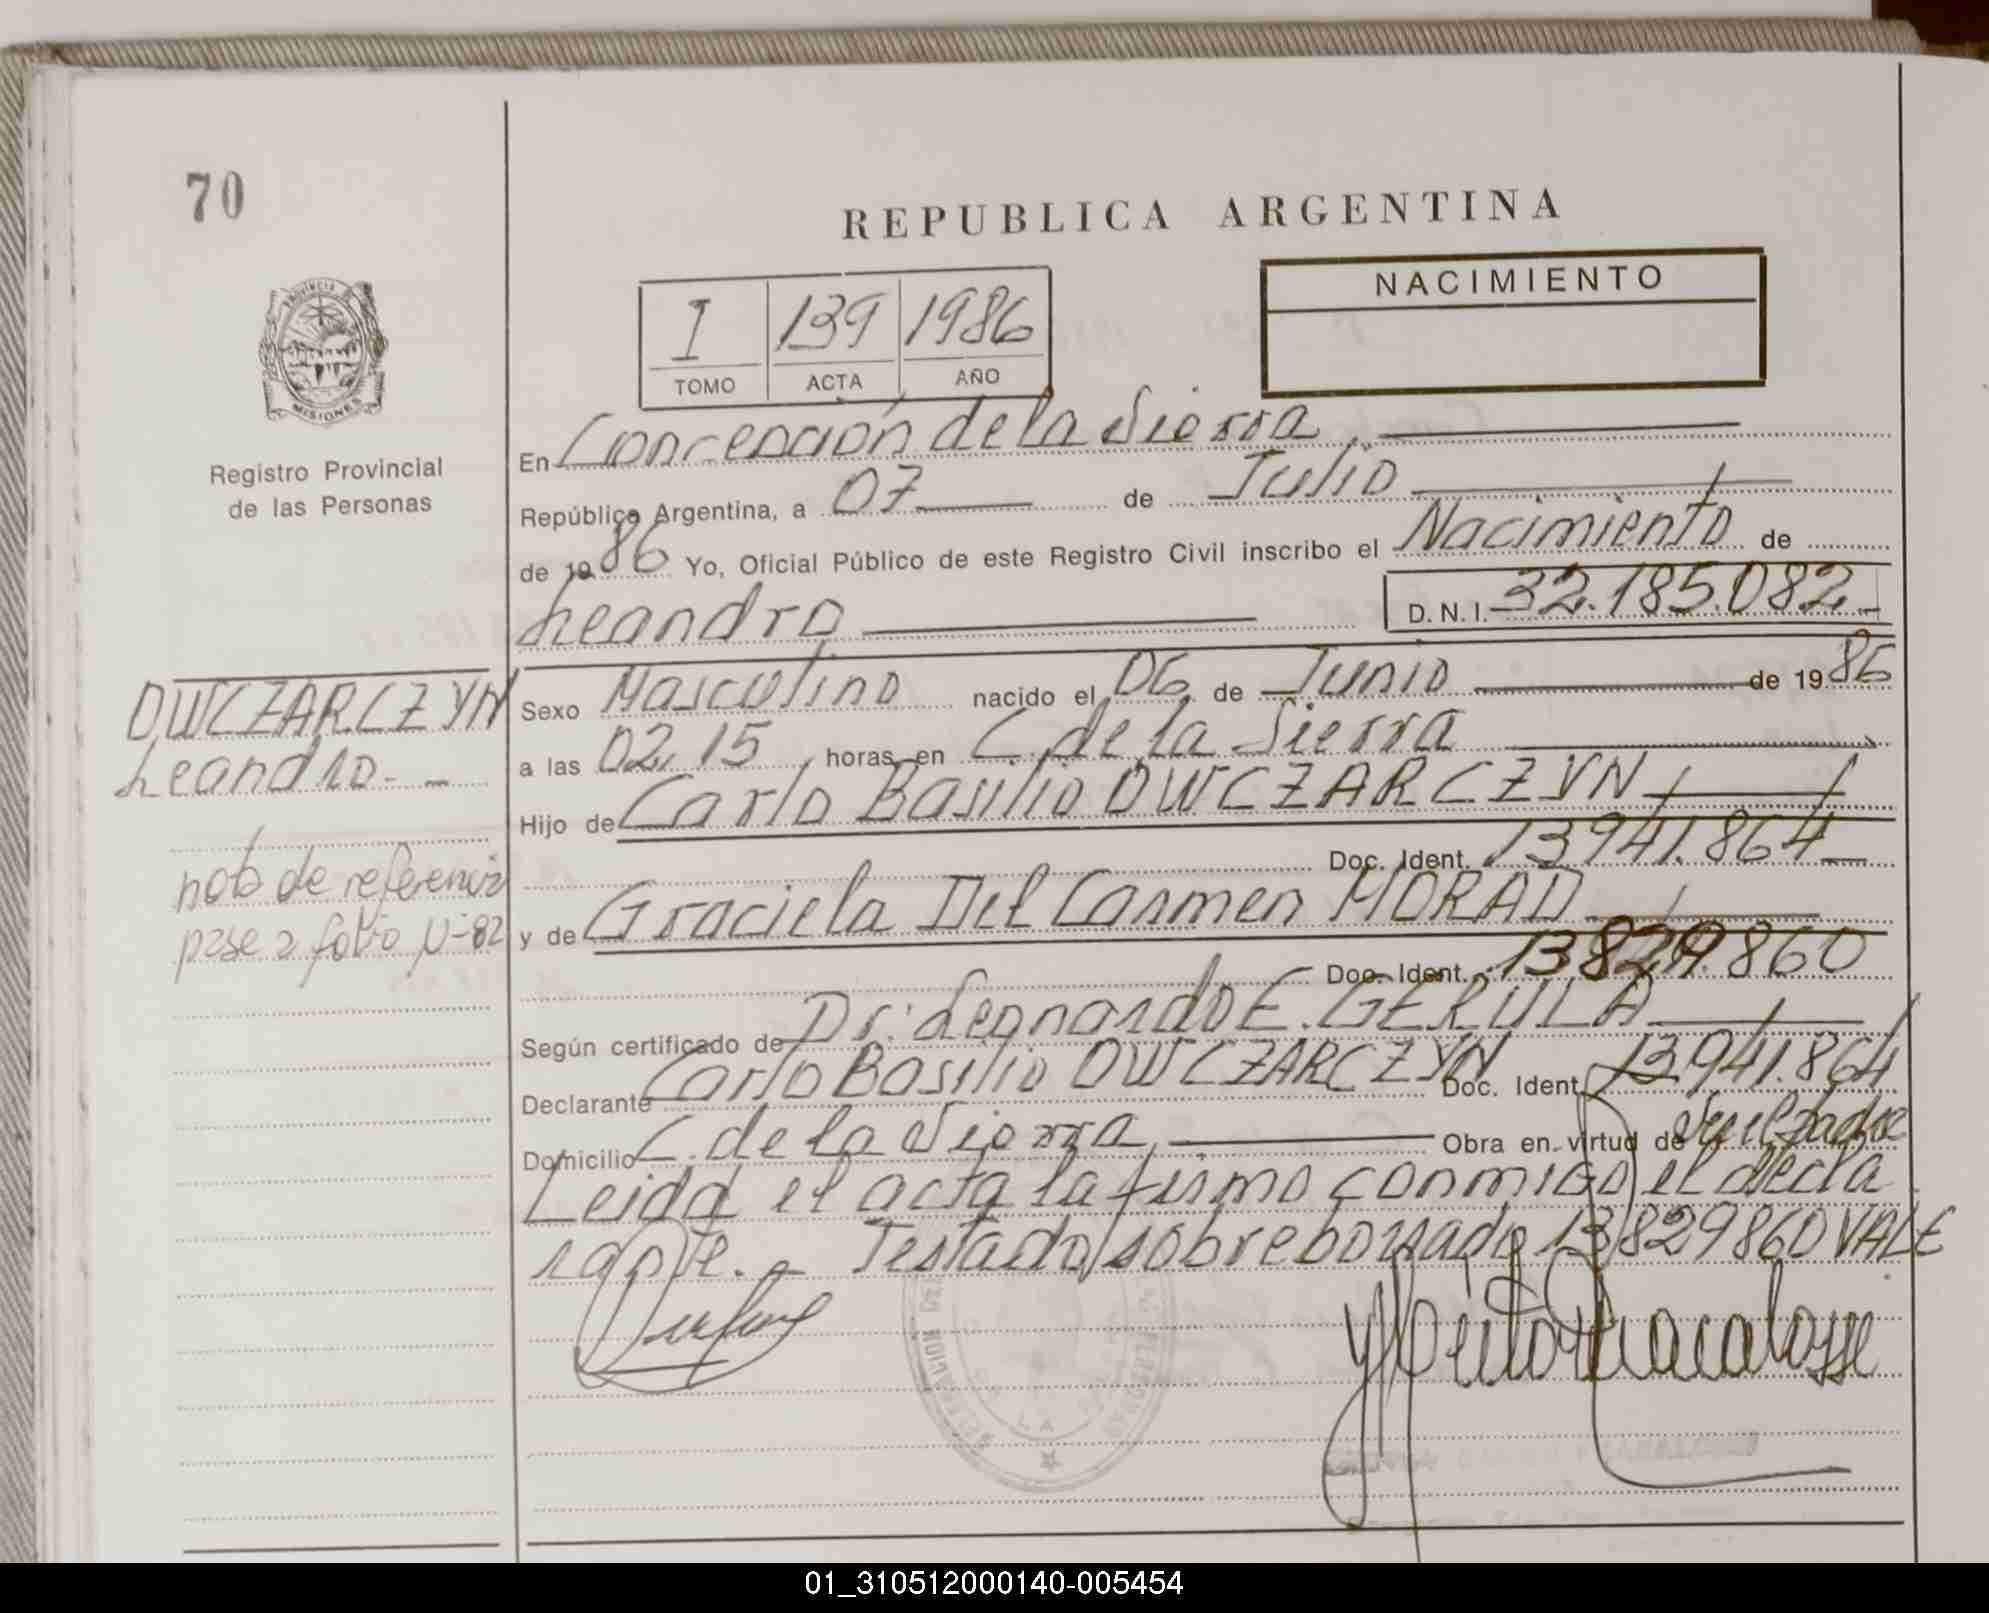 70
REPUBLICA ARGENTINA
NACIMIENTO
I 139 1986
TOMO ACTA AÑO
PROVINCIA DE
MISIONES
Registro Provincial
de las Personas
En Concepción de la Sierra
República Argentina, a 07 de Julio
de 1986 Yo, Oficial Público de este Registro Civil inscribo el Nacimiento de
Leandro D.N.I. 32.185.082
OWCZARCZYN
Leandro
Sexo Masculino nacido el 06 de Junio de 1986
a las 02,15 horas, en C. de la Sierra
Hijo de Carlo Basilio OWCZARCZYN
Doc. Ident. 13941.864
nota de referencia
pase a folio Nº 82
y de Graciela Del Carmen MORAD
Doc. Ident. 13829.860
Según certificado de Dr: Leonardo E. GERULA
Declarante Carlo Basilio OWCZARCZYN Doc. Ident. 13941.864
Domicilio C. de la Sierra Obra en virtud de
Leida el acta la firmo conmigo el decla
rante. Testado/sobreborrado 13829860 VALE
01_310512000140-005454